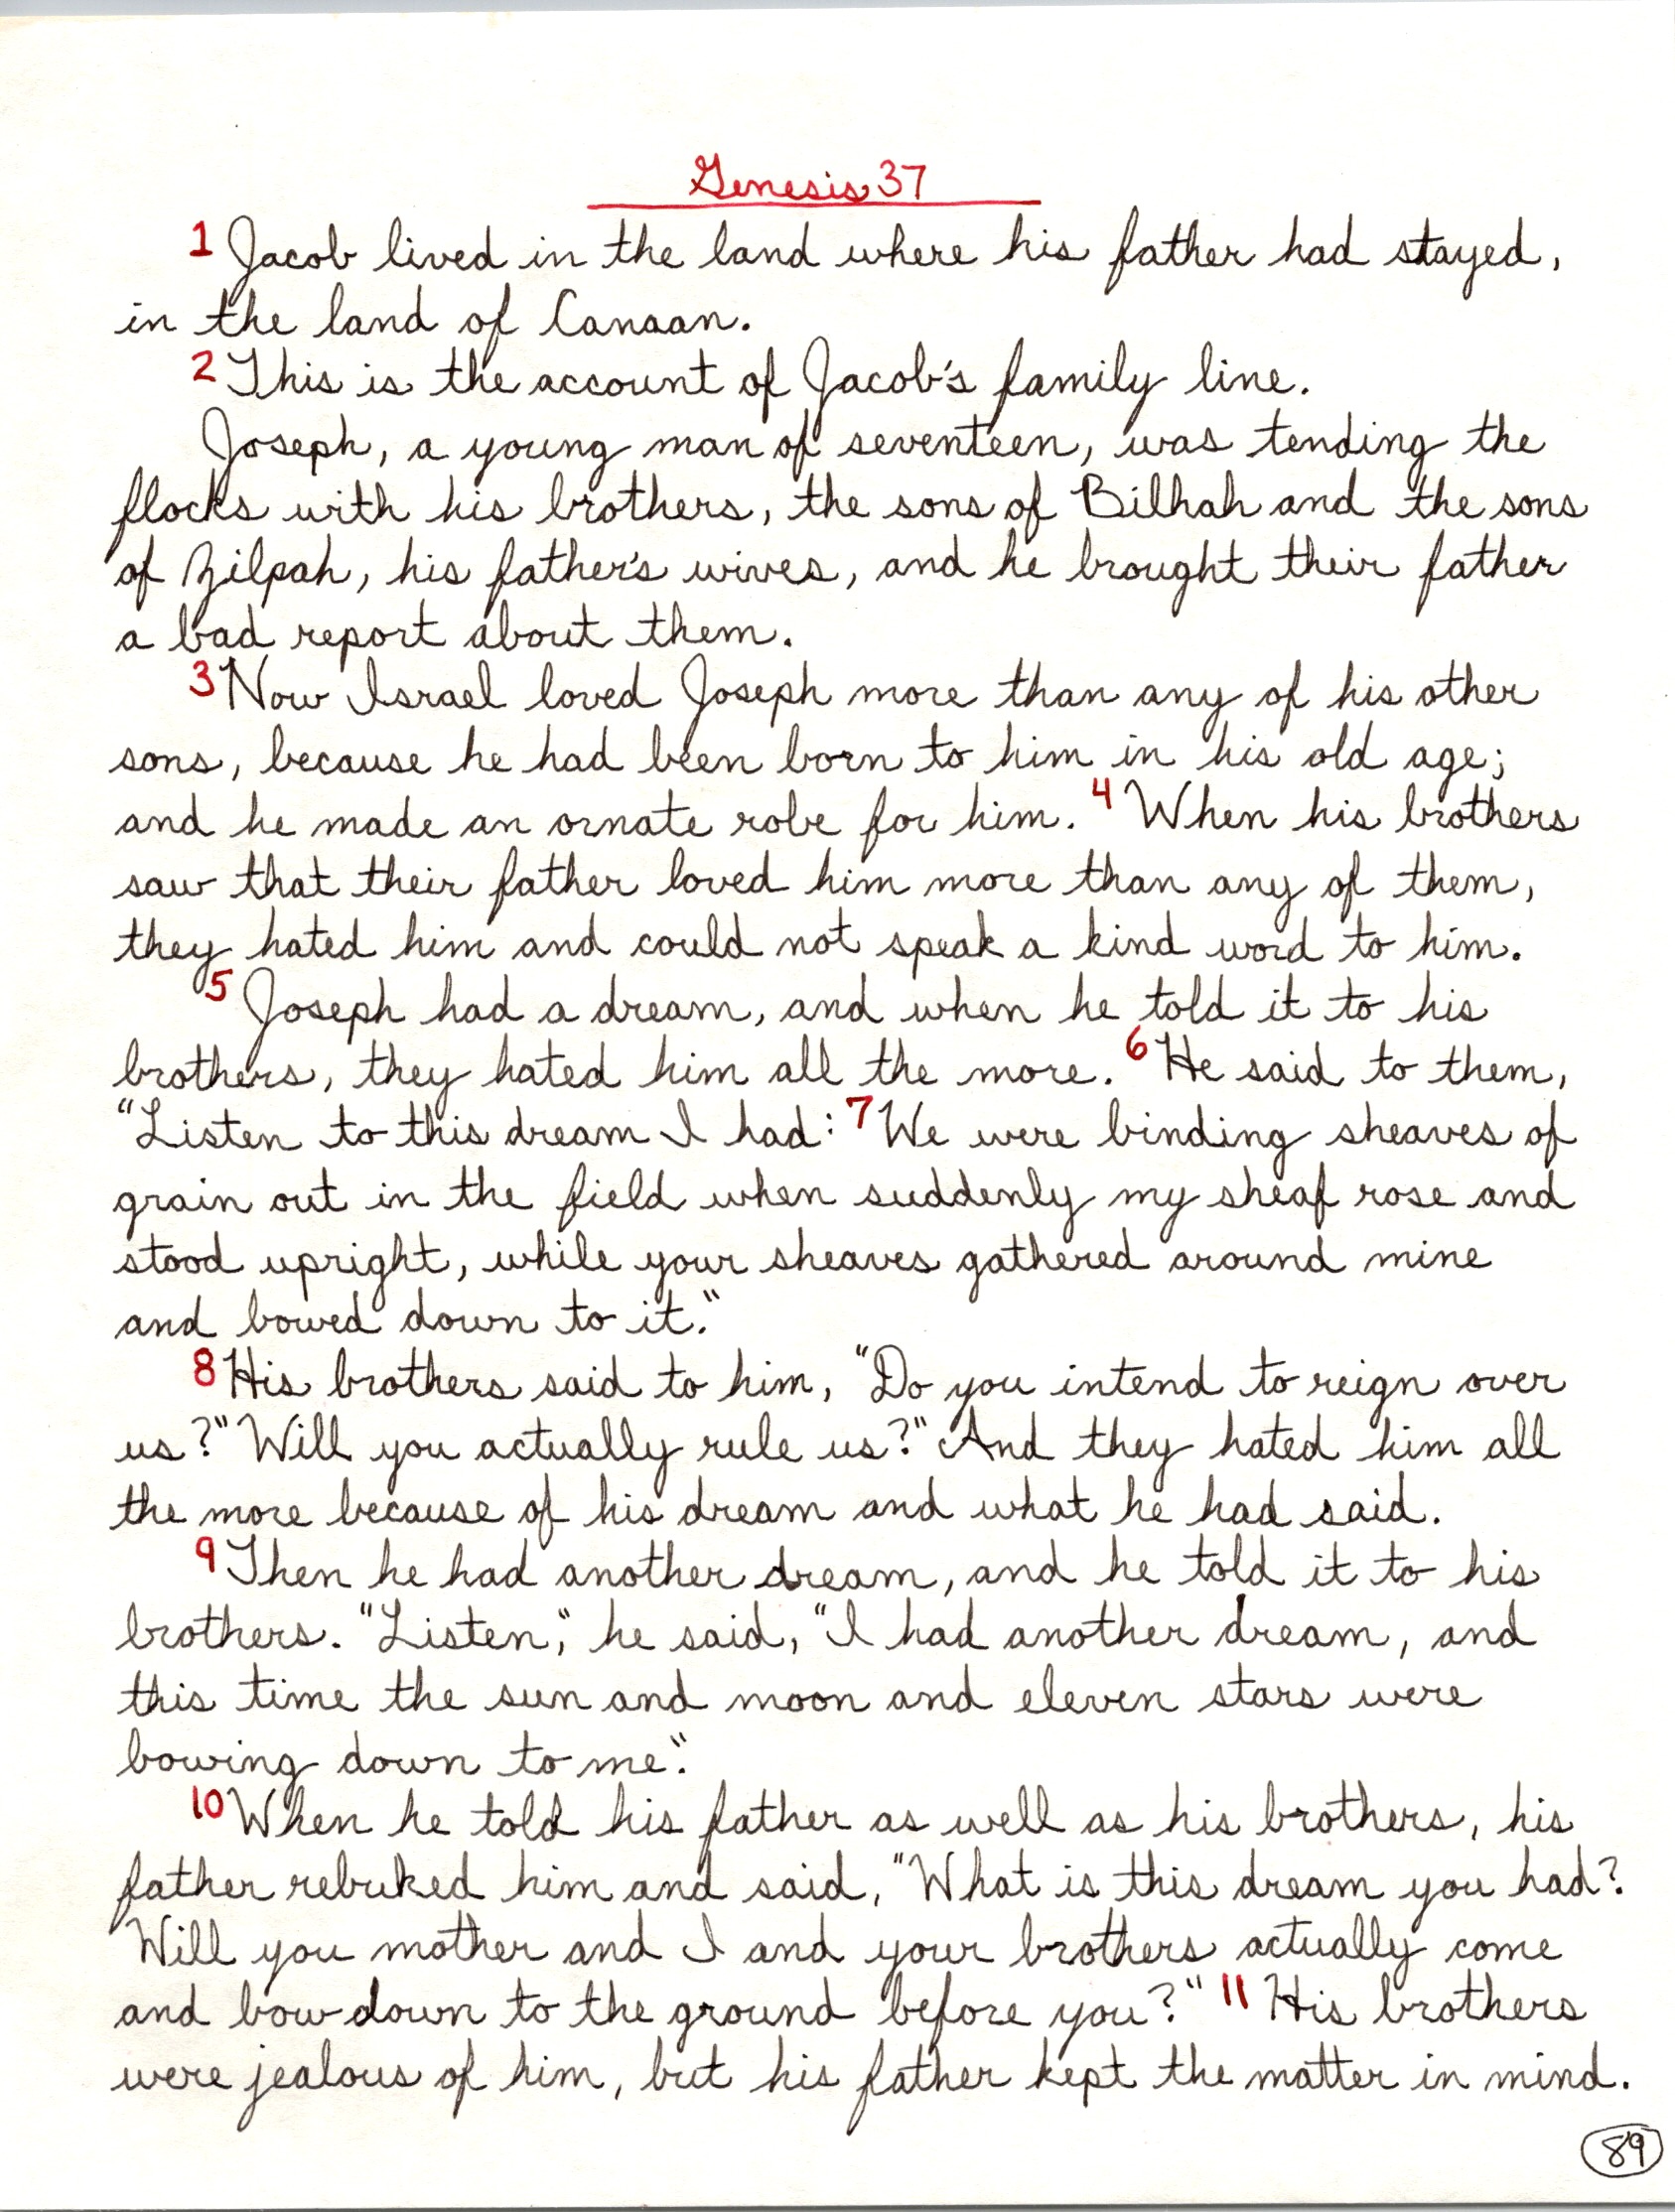 Genesis 37
1 Jacob lived in the land where his father had stayed,
in the land of Canaan.
2 This is the account of Jacob's family line.
Joseph, a young man of seventeen, was tending the
flocks with his brothers, the sons of Bilhah and the sons
of Zilpah, his father's wives, and he brought their father
a bad report about them.
3 Now Israel loved Joseph more than any of his other
sons, because he had been born to him in his old age;
and he made an ornate robe for him. 4 When his brothers
saw that their father loved him more than any of them,
they hated him and could not speak a kind word to him.
5 Joseph had a dream, and when he told it to his
brothers, they hated him all the more. 6 He said to them,
"Listen to this dream I had: 7 We were binding sheaves of
grain out in the field when suddenly my sheaf rose and
stood upright, while your sheaves gathered around mine
and bowed down to it."
8 His brothers said to him, "Do you intend to reign over
us?" Will you actually rule us?" And they hated him all
the more because of his dream and what he had said.
9 Then he had another dream, and he told it to his
brothers. "Listen," he said, "I had another dream, and
this time the sun and moon and eleven stars were
bowing down to me."
10 When he told his father as well as his brothers, his
father rebuked him and said, "What is this dream you had?
Will you mother and I and your brothers actually come
and bow down to the ground before you?" 11 His brothers
were jealous of him, but his father kept the matter in mind.
89